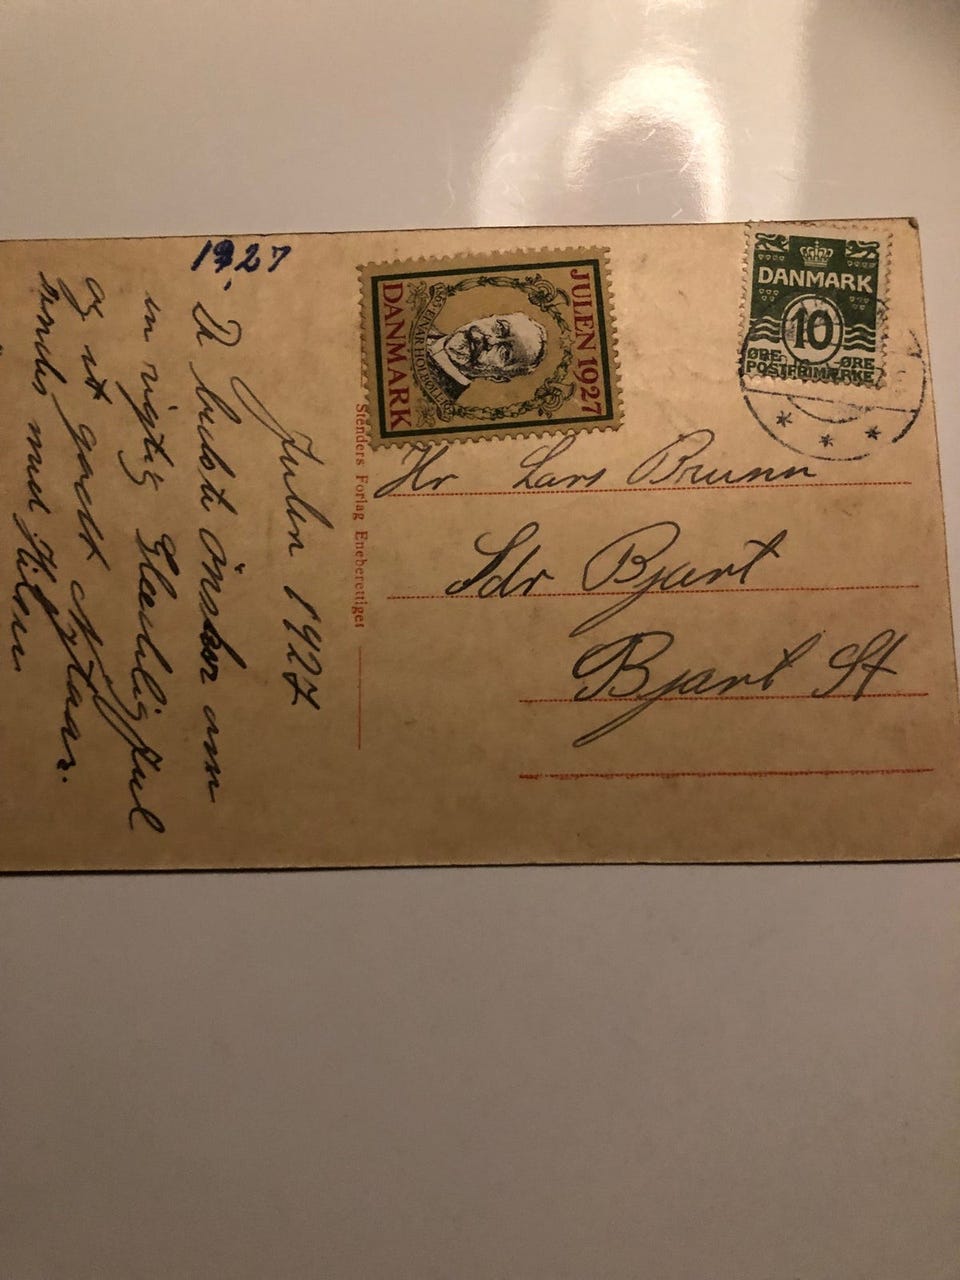 1927
Julen 1927
De bedste önsker om
en rigtig Glædelig Jul
og et godt Nytaar.
sendes med Hilsen
JULEN 1927
EINAR HOLBØLL
DANMARK
Stenders Forlag Eneberettiget
DANMARK
10
ØRE ØRE
POSTFRIMÆRKE
Hr Lars Brunn
Sdr Bjert
Bjert St